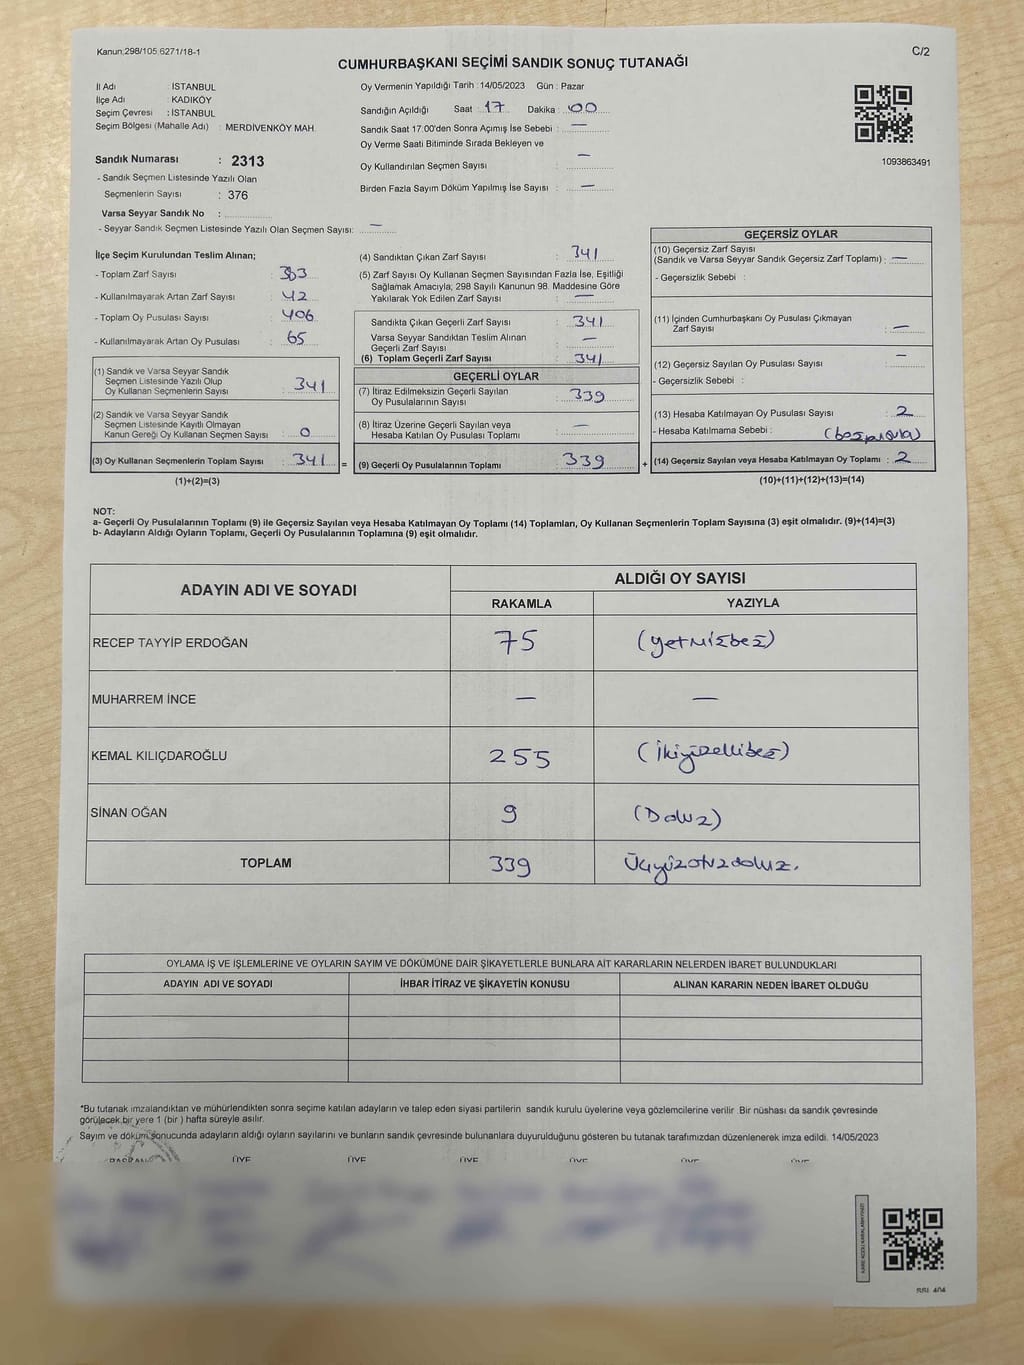 Kanun:298/105.6271/18-1
C/2
CUMHURBAŞKANI SEÇİMİ SANDIK SONUÇ TUTANAĞI
İl Adı : İSTANBUL
İlçe Adı : KADIKÖY
Seçim Çevresi : İSTANBUL
Seçim Bölgesi (Mahalle Adı) : MERDİVENKÖY MAH.
Sandık Numarası : 2313
- Sandık Seçmen Listesinde Yazılı Olan
Seçmenlerin Sayısı : 376
Varsa Seyyar Sandık No :
- Seyyar Sandık Seçmen Listesinde Yazılı Olan Seçmen Sayısı: —
Oy Vermenin Yapıldığı Tarih : 14/05/2023 Gün : Pazar
Sandığın Açıldığı Saat : 17 Dakika : 00
Sandık Saat 17.00'den Sonra Açımış İse Sebebi : —
Oy Verme Saati Bitiminde Sırada Bekleyen ve
Oy Kullandırılan Seçmen Sayısı : —
Birden Fazla Sayım Döküm Yapılmış İse Sayısı : —
1093863491
İlçe Seçim Kurulundan Teslim Alınan;
- Toplam Zarf Sayısı : 383
- Kullanılmayarak Artan Zarf Sayısı : 42
- Toplam Oy Pusulası Sayısı : 406
- Kullanılmayarak Artan Oy Pusulası : 65
(1) Sandık ve Varsa Seyyar Sandık
Seçmen Listesinde Yazılı Olup
Oy Kullanan Seçmenlerin Sayısı : 341
(2) Sandık ve Varsa Seyyar Sandık
Seçmen Listesinde Kayıtlı Olmayan
Kanun Gereği Oy Kullanan Seçmen Sayısı : 0
(3) Oy Kullanan Seçmenlerin Toplam Sayısı : 341
(1)+(2)=(3)
(4) Sandıktan Çıkan Zarf Sayısı : 341
(5) Zarf Sayısı Oy Kullanan Seçmen Sayısından Fazla İse, Eşitliği
Sağlamak Amacıyla; 298 Sayılı Kanunun 98. Maddesine Göre
Yakılarak Yok Edilen Zarf Sayısı : —
Sandıkta Çıkan Geçerli Zarf Sayısı : 341
Varsa Seyyar Sandıktan Teslim Alınan
Geçerli Zarf Sayısı : —
(6) Toplam Geçerli Zarf Sayısı : 341
GEÇERLİ OYLAR
(7) İtiraz Edilmeksizin Geçerli Sayılan
Oy Pusulalarının Sayısı : 339
(8) İtiraz Üzerine Geçerli Sayılan veya
Hesaba Katılan Oy Pusulası Toplamı : —
= (9) Geçerli Oy Pusulalarının Toplamı : 339
GEÇERSİZ OYLAR
(10) Geçersiz Zarf Sayısı
(Sandık ve Varsa Seyyar Sandık Geçersiz Zarf Toplamı) : —
- Geçersizlik Sebebi :
(11) İçinden Cumhurbaşkanı Oy Pusulası Çıkmayan
Zarf Sayısı : —
(12) Geçersiz Sayılan Oy Pusulası Sayısı : —
- Geçersizlik Sebebi :
(13) Hesaba Katılmayan Oy Pusulası Sayısı : 2
- Hesaba Katılmama Sebebi : (boş pusula)
+ (14) Geçersiz Sayılan veya Hesaba Katılmayan Oy Toplamı : 2
(10)+(11)+(12)+(13)=(14)
NOT:
a- Geçerli Oy Pusulalarının Toplamı (9) ile Geçersiz Sayılan veya Hesaba Katılmayan Oy Toplamı (14) Toplamları, Oy Kullanan Seçmenlerin Toplam Sayısına (3) eşit olmalıdır. (9)+(14)=(3)
b- Adayların Aldığı Oyların Toplamı, Geçerli Oy Pusulalarının Toplamına (9) eşit olmalıdır.
ADAYIN ADI VE SOYADI
ALDIĞI OY SAYISI
RAKAMLA YAZIYLA
RECEP TAYYİP ERDOĞAN 75 (yetmişbeş)
MUHARREM İNCE — —
KEMAL KILIÇDAROĞLU 255 (ikiyüzellibeş)
SİNAN OĞAN 9 (Dokuz)
TOPLAM 339 Üçyüzotuzdokuz.
OYLAMA İŞ VE İŞLEMLERİNE VE OYLARIN SAYIM VE DÖKÜMÜNE DAİR ŞİKAYETLERLE BUNLARA AİT KARARLARIN NELERDEN İBARET BULUNDUKLARI
ADAYIN ADI VE SOYADI İHBAR İTİRAZ VE ŞİKAYETİN KONUSU ALINAN KARARIN NEDEN İBARET OLDUĞU
*Bu tutanak imzalandıktan ve mühürlendikten sonra seçime katılan adayların ve talep eden siyasi partilerin sandık kurulu üyelerine veya gözlemcilerine verilir. Bir nüshası da sandık çevresinde
görülecek bir yere 1 (bir) hafta süreyle asılır.
Sayım ve döküm sonucunda adayların aldığı oyların sayılarını ve bunların sandık çevresinde bulunanlara duyurulduğunu gösteren bu tutanak tarafımızdan düzenlenerek imza edildi. 14/05/2023
BAŞKAN ÜYE ÜYE ÜYE ÜYE ÜYE ÜYE